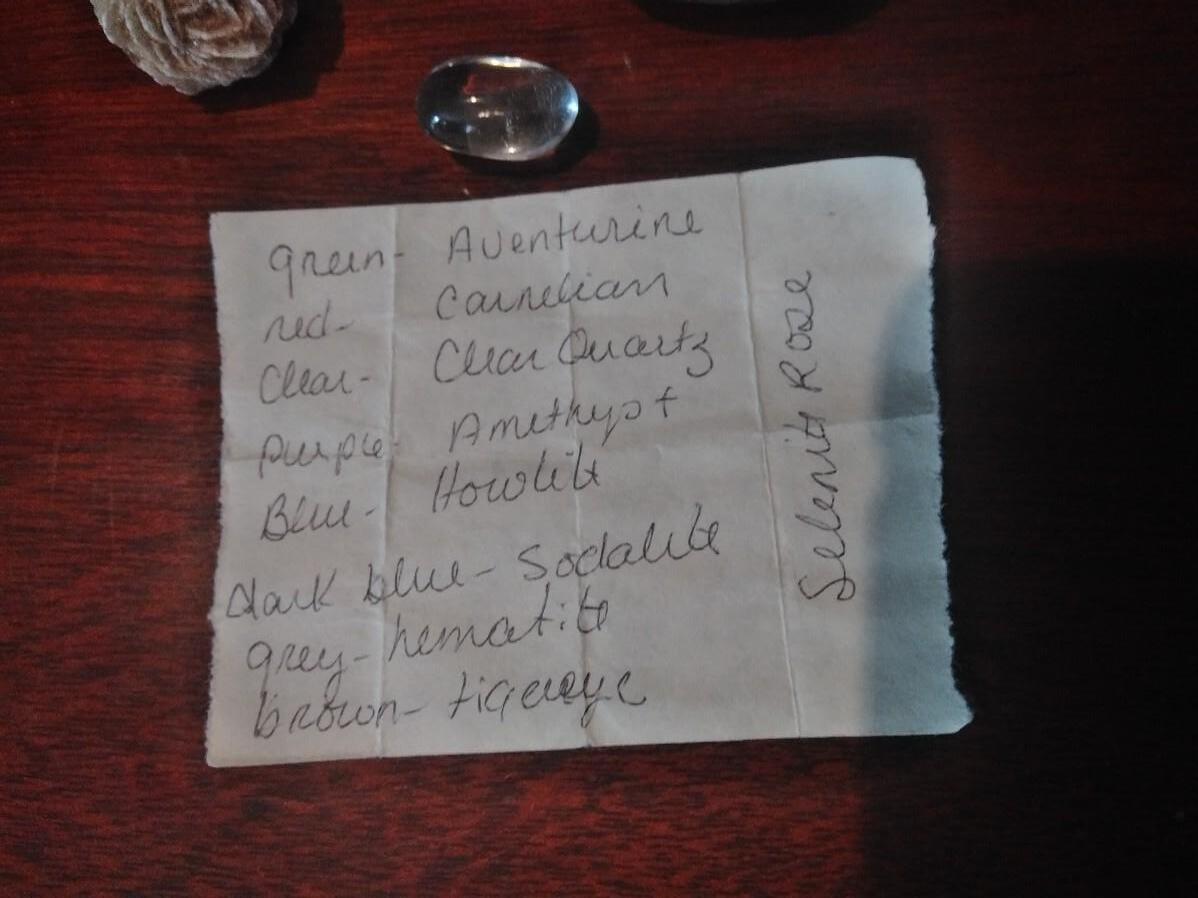 green- Aventurine
red- Carnelian
Clear- Clear Quartz
purple- Amethyst
Blue- Howlite
dark blue- Sodalite
grey- hematite
brown- tigereye
Selenite Rose